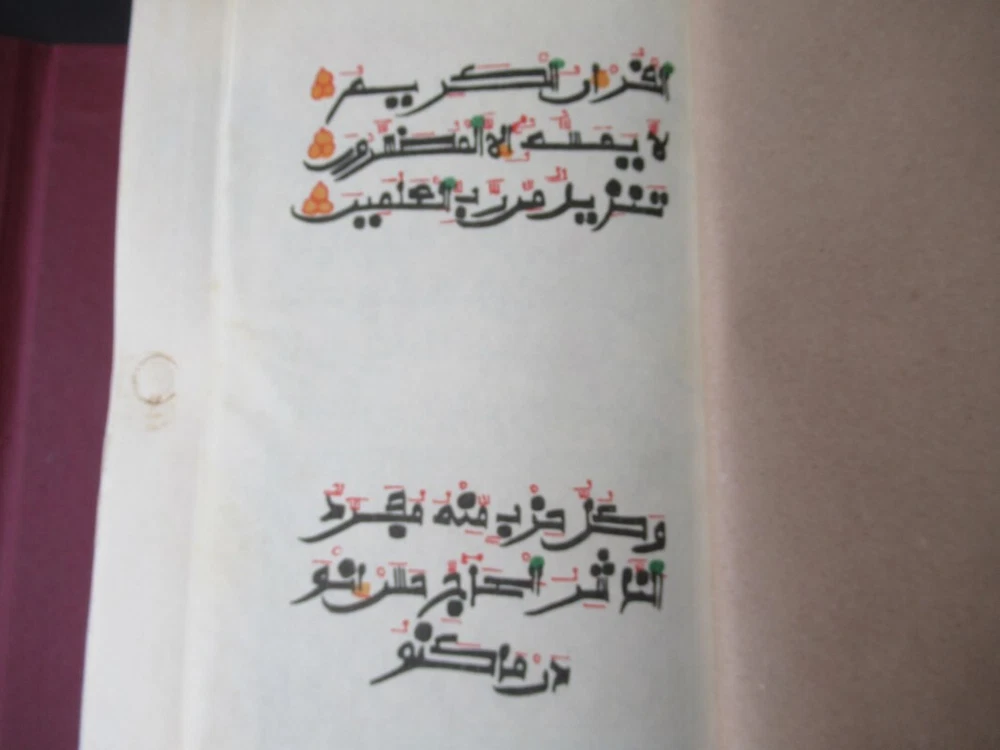 القرءان الكريم
لا يمسه الا المطهرون
تنزيل من رب العلمين
وكل حزب منه مجرد
الناشر الحاج حسن انو
درما كنو